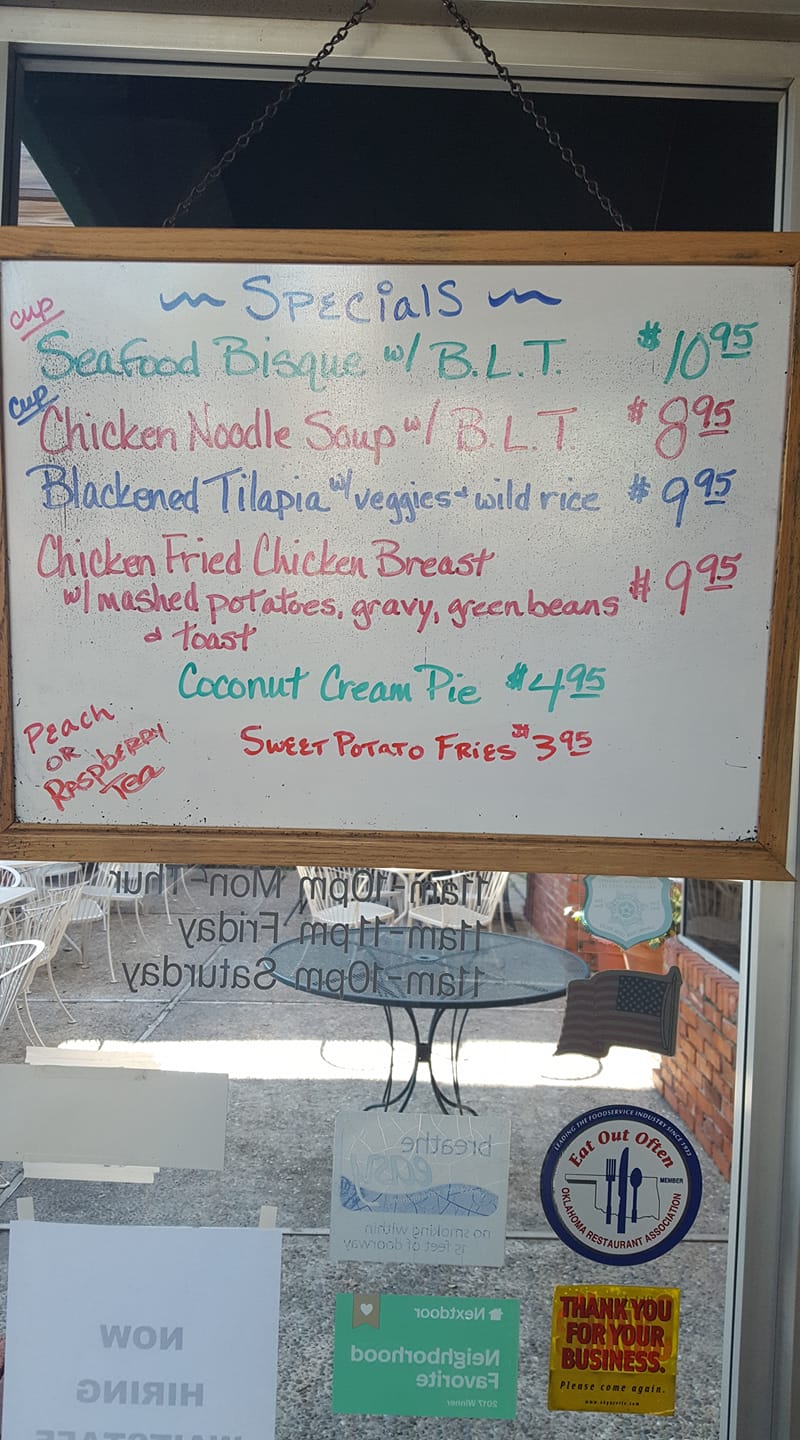 ~ Specials ~
cup
Seafood Bisque w/ B.L.T. $10.95
cup
Chicken Noodle Soup w/ B.L.T. $8.95
Blackened Tilapia w/ veggies & wild rice $9.95
Chicken Fried Chicken Breast
w/ mashed potatoes, gravy, green beans $9.95
& toast
Coconut Cream Pie $4.95
Peach
or
Raspberry
Tea
Sweet Potato Fries $3.95
11am-10pm Mon-Thur
11am-11pm Friday
11am-10pm Saturday
breathe
easy
no smoking within
15 feet of doorway
LEADING THE FOODSERVICE INDUSTRY SINCE 1933
Eat Out Often
MEMBER
OKLAHOMA RESTAURANT ASSOCIATION
Nextdoor
Neighborhood
Favorite
2017 Winner
THANK YOU
FOR YOUR
BUSINESS.
Please come again.
NOW
HIRING
WAITSTAFF